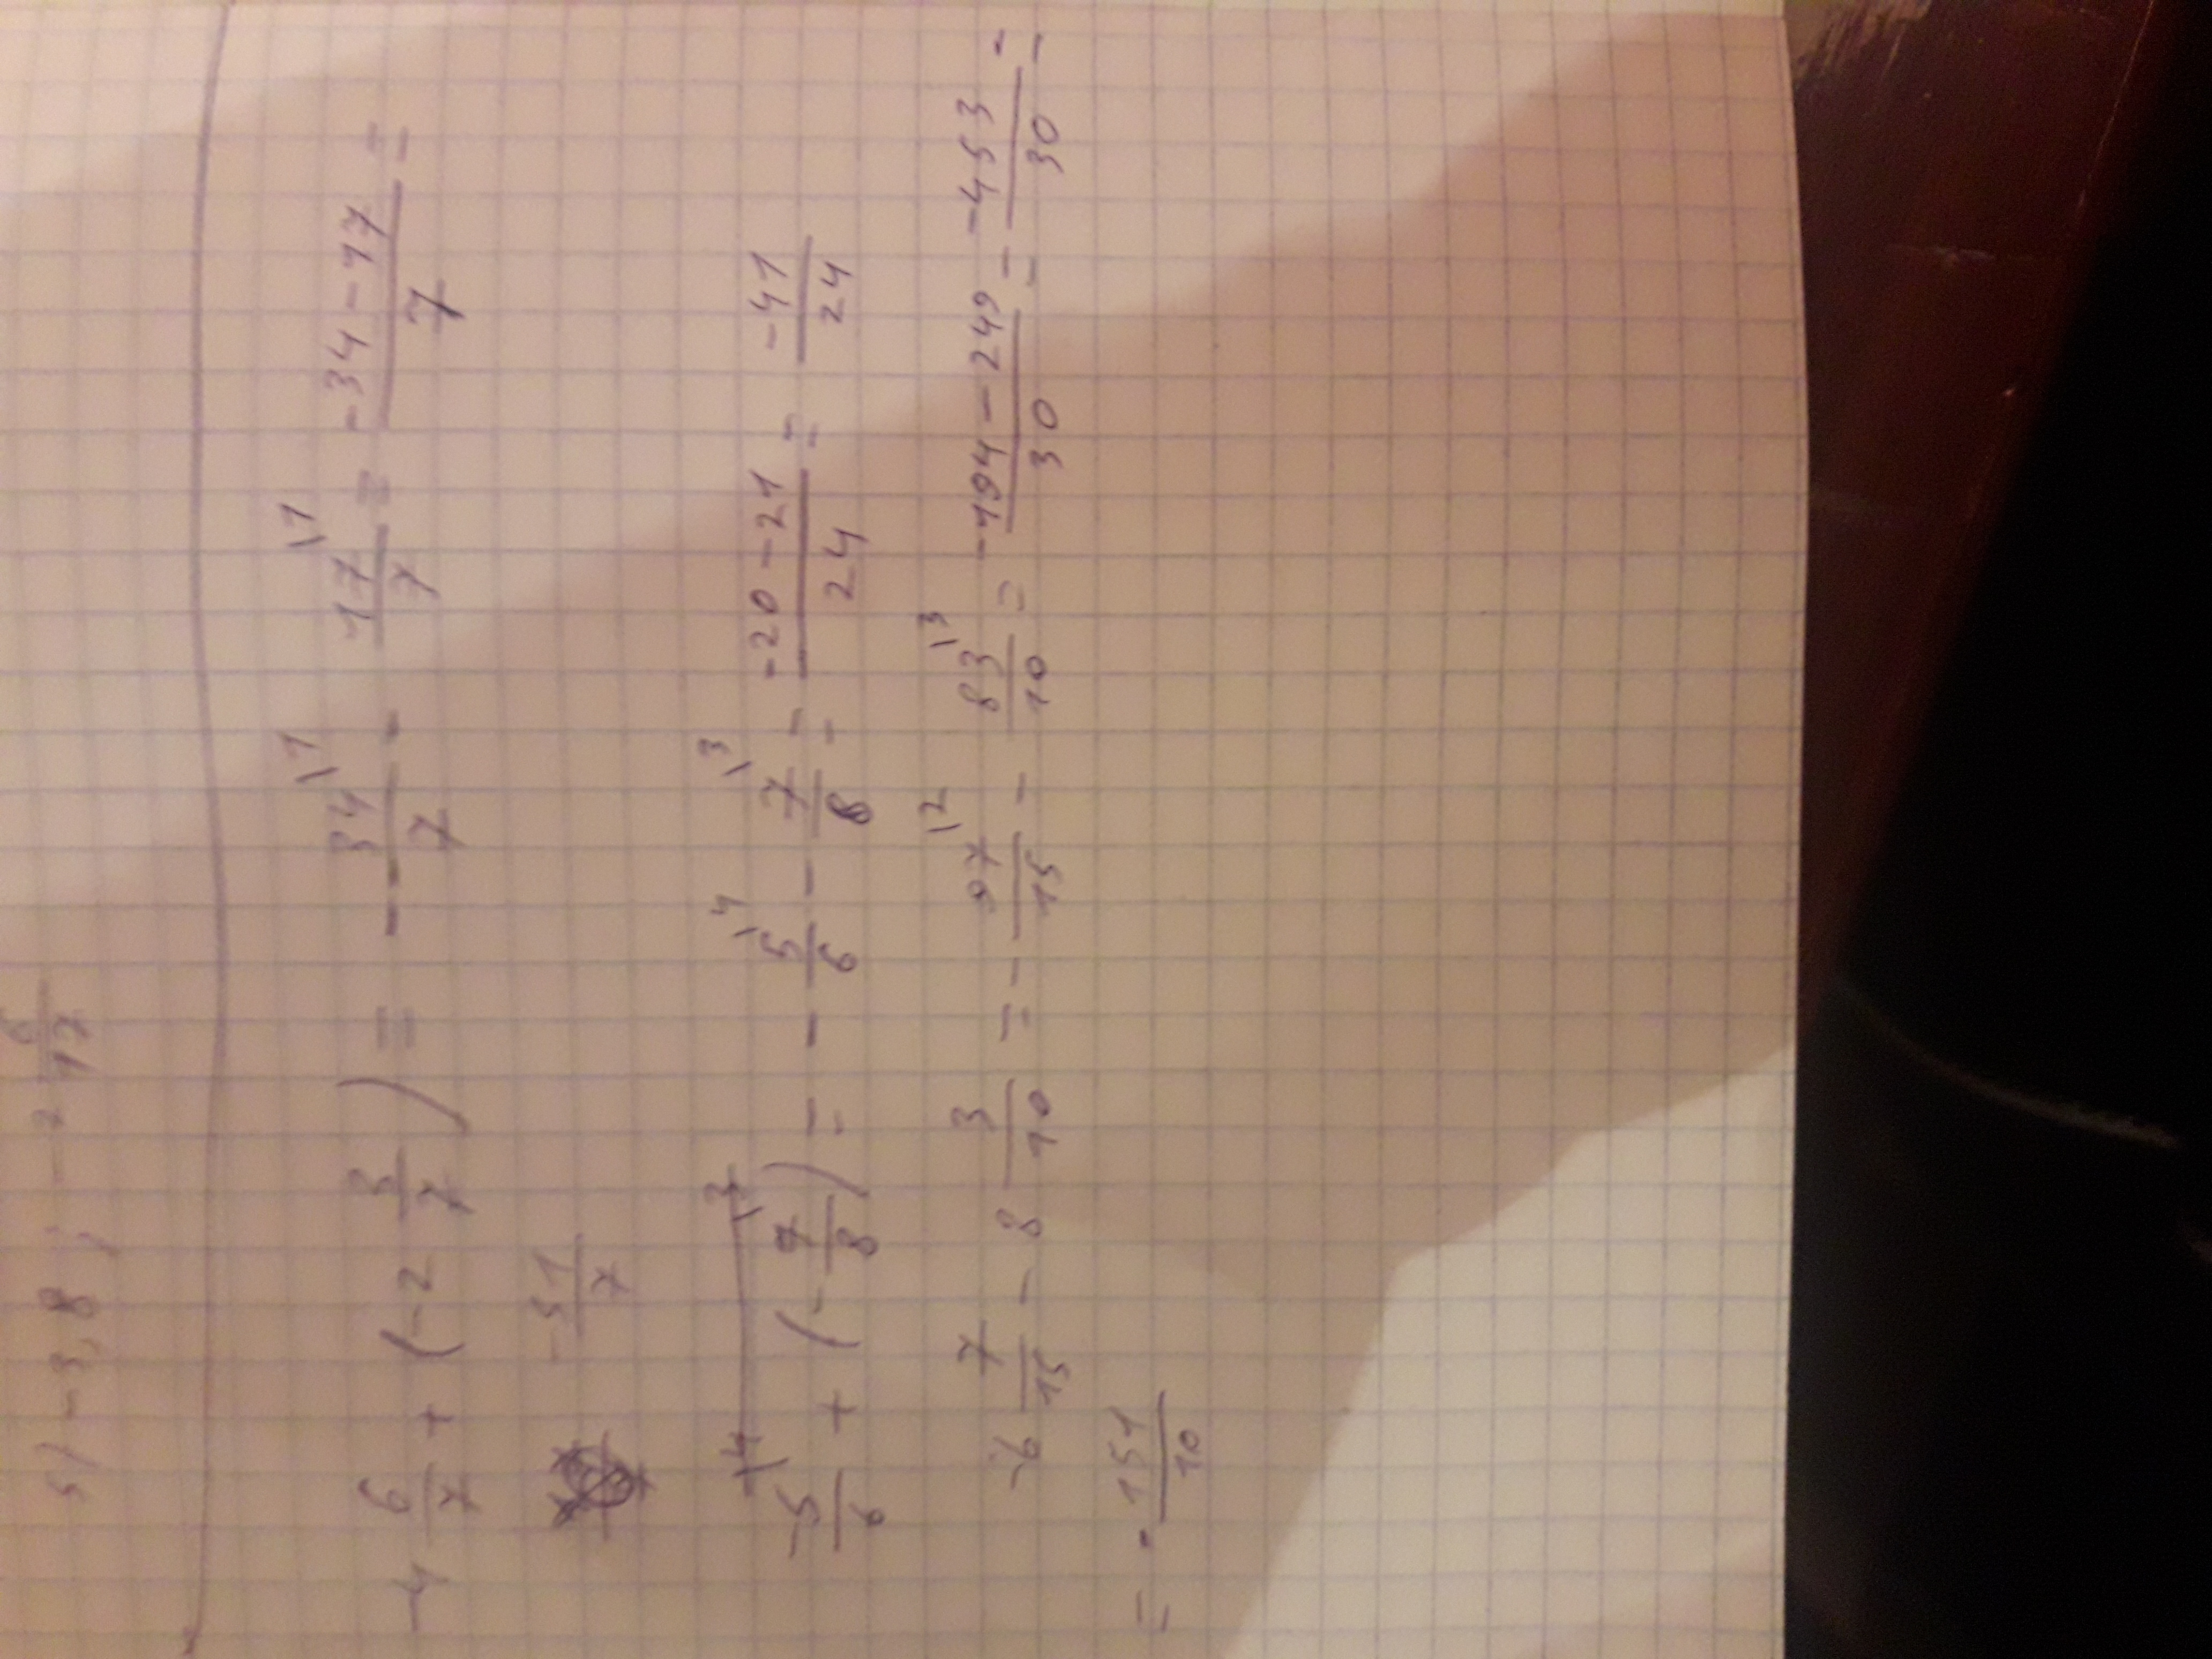 5) -3,8; -2 6/17
-4 6/7 + (-2 3/7) = - 34\1/7 - 17\1/7 = -34-17/7 =
-51/7
-5\4/6 + (-7\3/8) = - 5\4/6 - 7\3/8 = -20-21/24 = -41/24
-6 7/15 - 8 3/10 = - 97\2/15 - 83\3/10 = -194-249/30 = -453/30 =
= - 151/10